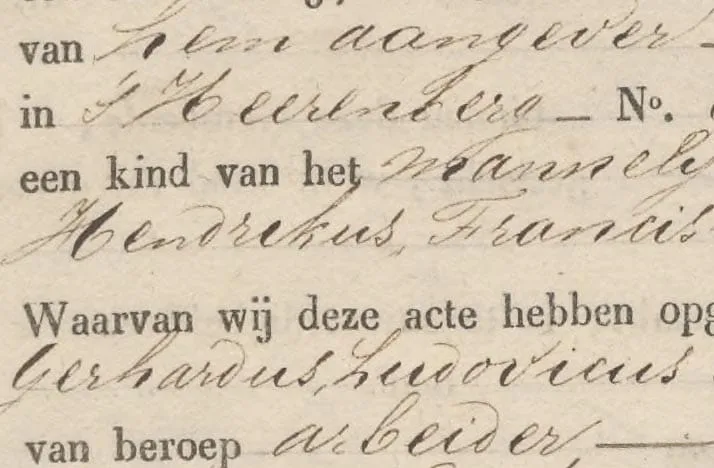 van hem aangever –
in 's Heerenberg – No.
een kind van het mannely
Hendrikus, Francis
Waarvan wij deze acte hebben opg
Gerhardus, Ludovicus
van beroep arbeider, —